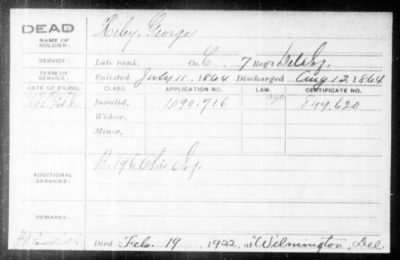 DEAD
NAME OF SOLDIER: Kiley, George
SERVICE: Late rank, Co. C, 7 Reg't Del Inf.
TERM OF SERVICE: Enlisted July 11, 1864 Discharged Aug 12 1864
DATE OF FILING. CLASS. APPLICATION NO. LAW. CERTIFICATE NO.
Invalid, 1090.716 age 849.620
Widow,
Minor,
ADDITIONAL SERVICES: 196 Ohio Inf.
REMARKS:
Died Feb. 19, 1922, at Wilmington, Del